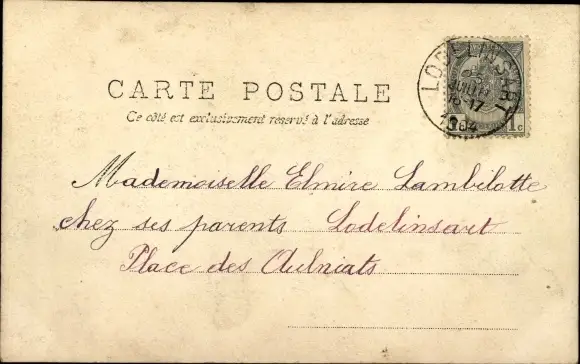 CARTE POSTALE
Ce côté est exclusivement réservé à l'adresse
LODELINSART
JUILLET
16-17
1904
1c
Mademoiselle Elmire Lambilotte
chez ses parents Lodelinsart
Place des Aulniats